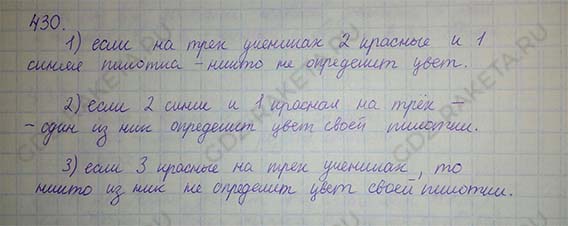 430.
1) если на трех учениках 2 красные и 1
синяя пилотка - никто не определит цвет.
2) если 2 синие и 1 красная на трёх -
- один из них определит цвет своей пилотки.
3) если 3 красные на трех учениках, то
никто из них не определит цвет своей пилотки.
GDZ-RAKETA.RU